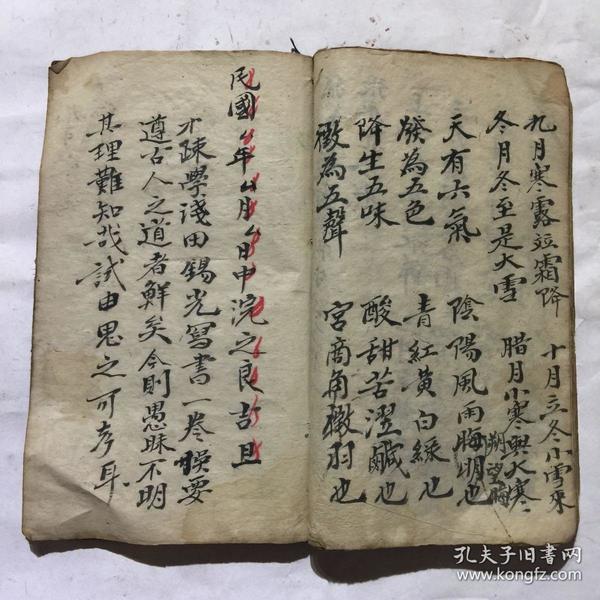 九月寒露並霜降 十月立冬小雪來
冬月冬至是大雪 腊月小寒與大寒
天有六氣 陰陽風雨晦明也
朔望晦
發為五色 青紅黃白綠也
降生五味 酸甜苦澀鹹也
徵為五聲 宮商角徵羽也
民國 年 月 日中浣之良吉旦
才疎學淺田錫光寫書一卷 要
遵古人之道者鮮矣今則愚昧不明
其理難知哉試由思之可序耳
孔夫子旧书网
www.kongfz.com